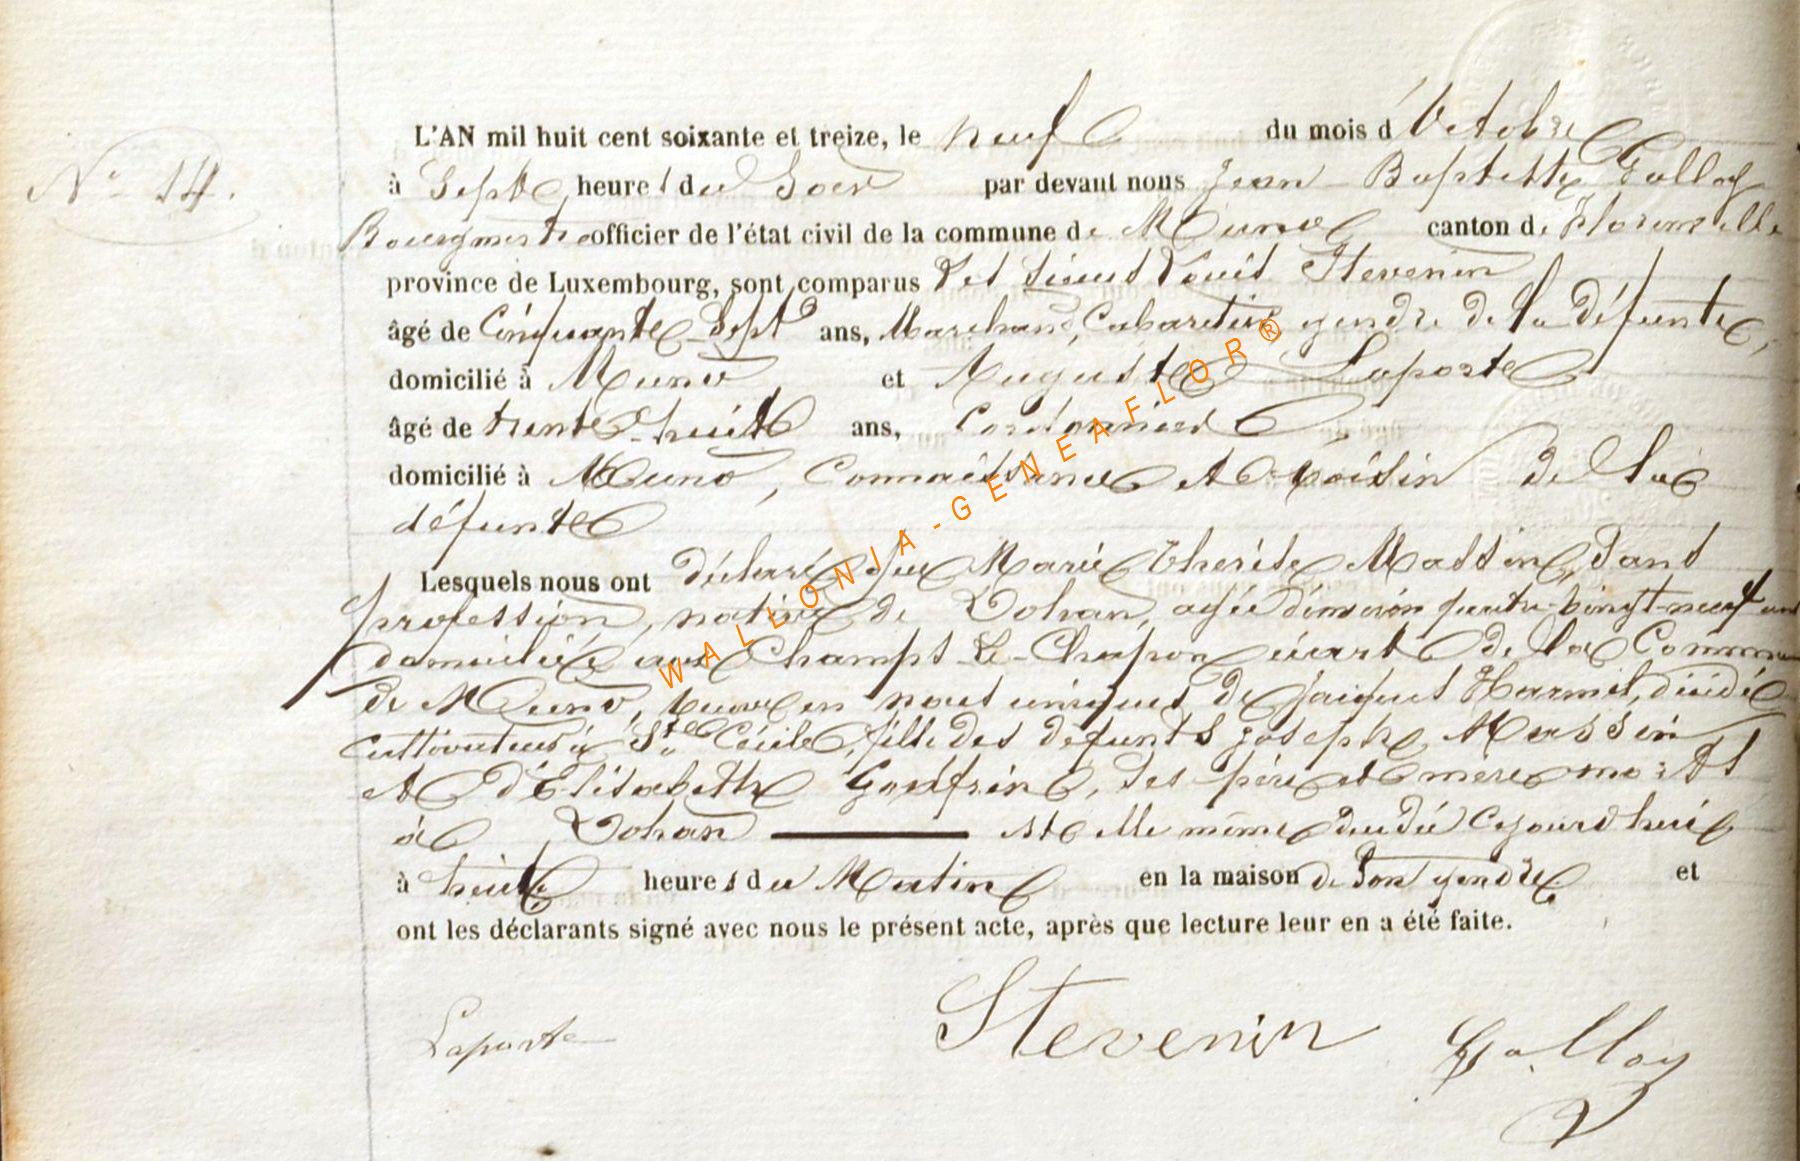 N° 14.
L'AN mil huit cent soixante et treize, le neuf du mois d'Octobre
à Sept heures du Soir par devant nous Jean Baptiste Galloy
Bourgmestre officier de l'état civil de la commune de Muno canton de Florenville
province de Luxembourg, sont comparus Les Sieurs Louis Stevenin
âgé de Cinquante-Sept ans, Marchand, Cabaretier gendre de la défunte,
domicilié à Muno, et Auguste Laporte
âgé de trente-huit ans, Cordonnier
domicilié à Muno, Connaissance et voisin de la
défunte
Lesquels nous ont déclaré que Marie Thérèse Massin, Sans
profession, native de Dohan, agée d'environ quatre-vingt-neuf ans
domiciliée aux Champs-Le-Chapon écart de la Commune
de Muno, veuve en noces uniques de Jacques Harmel, décidé
cultivateur à Ste Cécile, fille des défunts Joseph Massin
et d'Elisabeth Godfrin, ses père et mère morts
à Dohan est elle même décédée cejourd'hui
à huit heures du Matin en la maison de Son gendre et
ont les déclarants signé avec nous le présent acte, après que lecture leur en a été faite.
Laporte Stevenin Galloy
WALLONIA-GENEAFLOR®